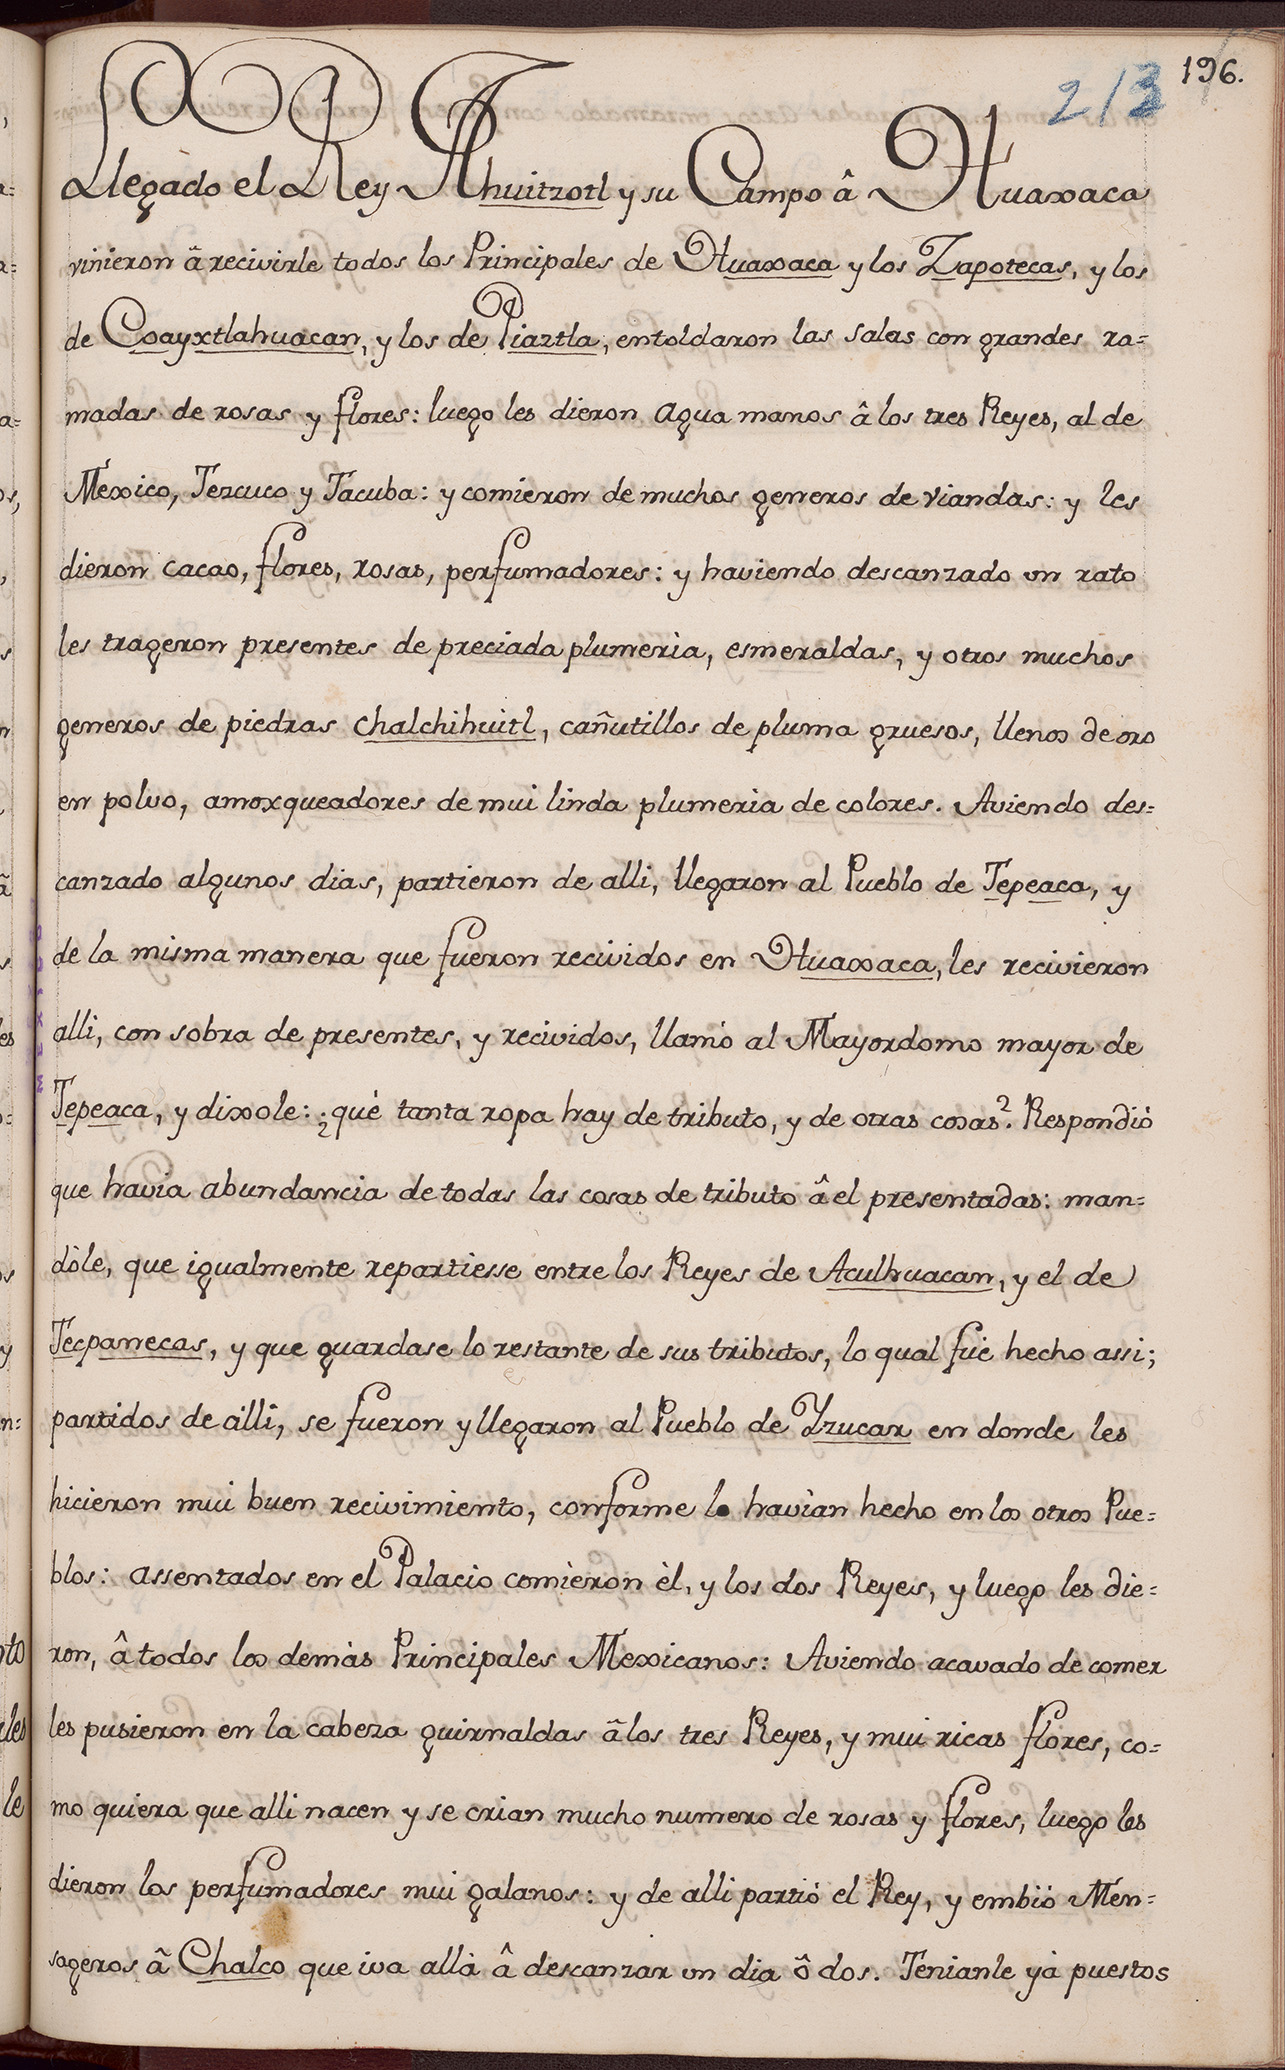 213 196.
Llegado el Rey Ahuitzotl y su Campo â Huaxaca
vinieron â recivirle todos los Principales de Huaxaca y los Zapotecas, y los
de Coayxtlahuacan, y los de Piaztla, entoldaron las salas con grandes ra=
madas de rosas y flores: luego les dieron agua manos â los tres Reyes, al de
México, Tezcuco y Tacuba: y comieron de muchos generos de viandas: y les
dieron cacao, flores, rosas, perfumadores: y haviendo descanzado un rato
les trageron presentes de preciada plumeria, esmeraldas, y otros muchos
generos de piedras chalchihuitl, cañutillos de pluma gruesos, llenos de oro
en polvo, amoxqueadores de mui linda plumeria de colores. Aviendo des=
canzado algunos dias, partieron de alli, llegaron al Pueblo de Tepeaca, y
de la misma manera que fueron recividos en Huaxaca, les recivieron
alli, con sobra de presentes, y recividos, llamó al Mayordomo mayor de
Tepeaca, y dixole: ¿què tanta ropa hay de tributo, y de otras cosas? Respondiò
que havia abundancia de todas las cosas de tributo â el presentadas: man=
dòle, que igualmente repartiesse entre los Reyes de Aculhuacan, y el de
Tecpanecas, y que guardase lo restante de sus tributos, lo qual fuè hecho assi;
partidos de alli, se fueron y llegaron al Pueblo de Yzucar en donde les
hicieron mui buen recivimiento, conforme lo havian hecho en los otros Pue=
blos: assentados en el Palacio comieron èl, y los dos Reyes, y luego les die=
ron, â todos los demàs Principales Mexicanos: Aviendo acavado de comer
les pusieron en la cabeza guirnaldas â los tres Reyes, y mui ricas flores, co=
mo quiera que alli nacen y se crian mucho numero de rosas y flores, luego les
dieron los perfumadores mui galanos: y de alli partió el Rey, y embió Men=
sageros â Chalco que iva allà â descanzar un dia ô dos. Tenianle yà puestos